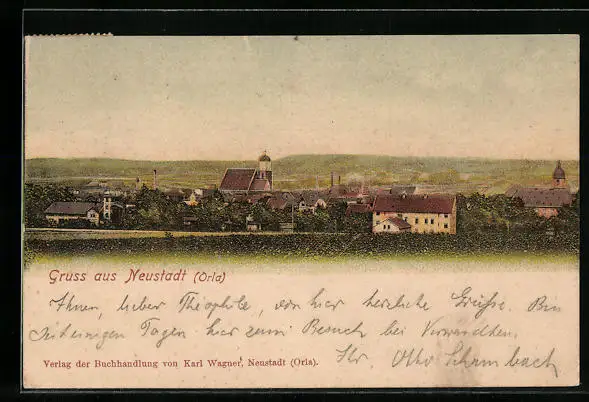 Gruss aus Neustadt (Orla)
Ihnen, lieber Theophil, von hier herzliche Grüsse. Bin
seit einigen Tagen hier zum Besuch bei Verwandten.
Ihr Otto Schambach
Verlag der Buchhandlung von Karl Wagner, Neustadt (Orla).